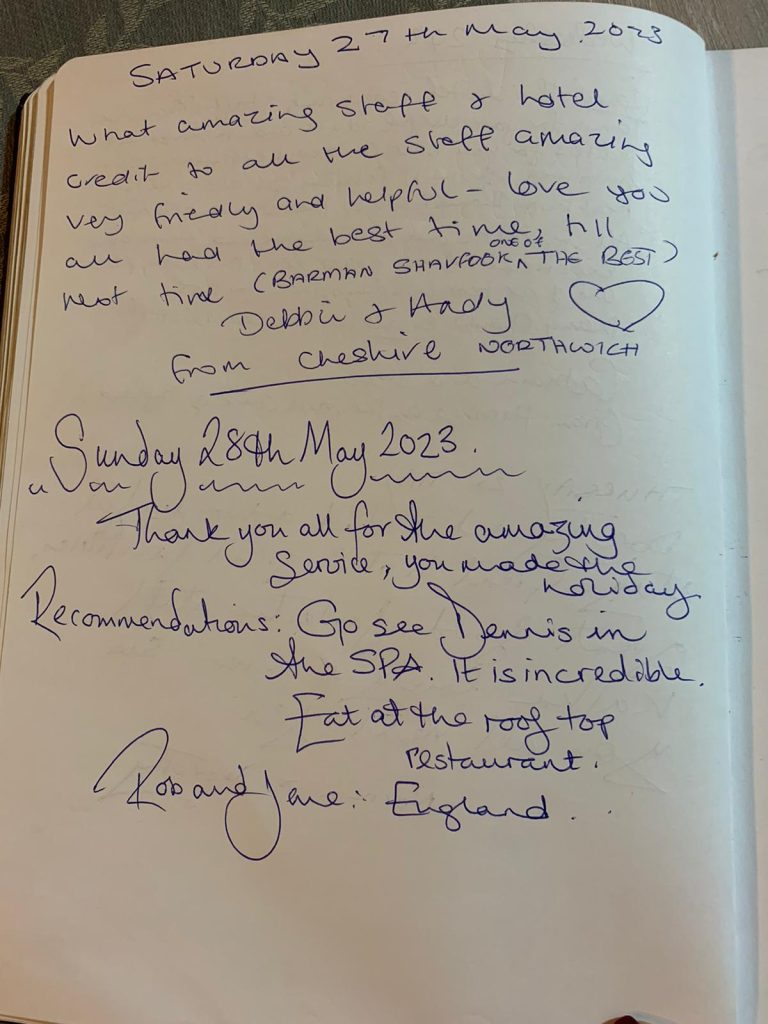 SATURDAY 27th May 2023
What amazing staff & hotel
credit to all the staff amazing
very friedly and helpful - love you
all had the best time, till
next time (BARMAN SHAVFOOK one of THE BEST)
Debbie & Andy
from Cheshire NORTHWICH
Sunday 28th May 2023.
Thank you all for the amazing
service, you made the
holiday
Recommendations: Go see Dennis in
the SPA. It is incredible.
Eat at the roof top
restaurant.
Rob and Jane: England..